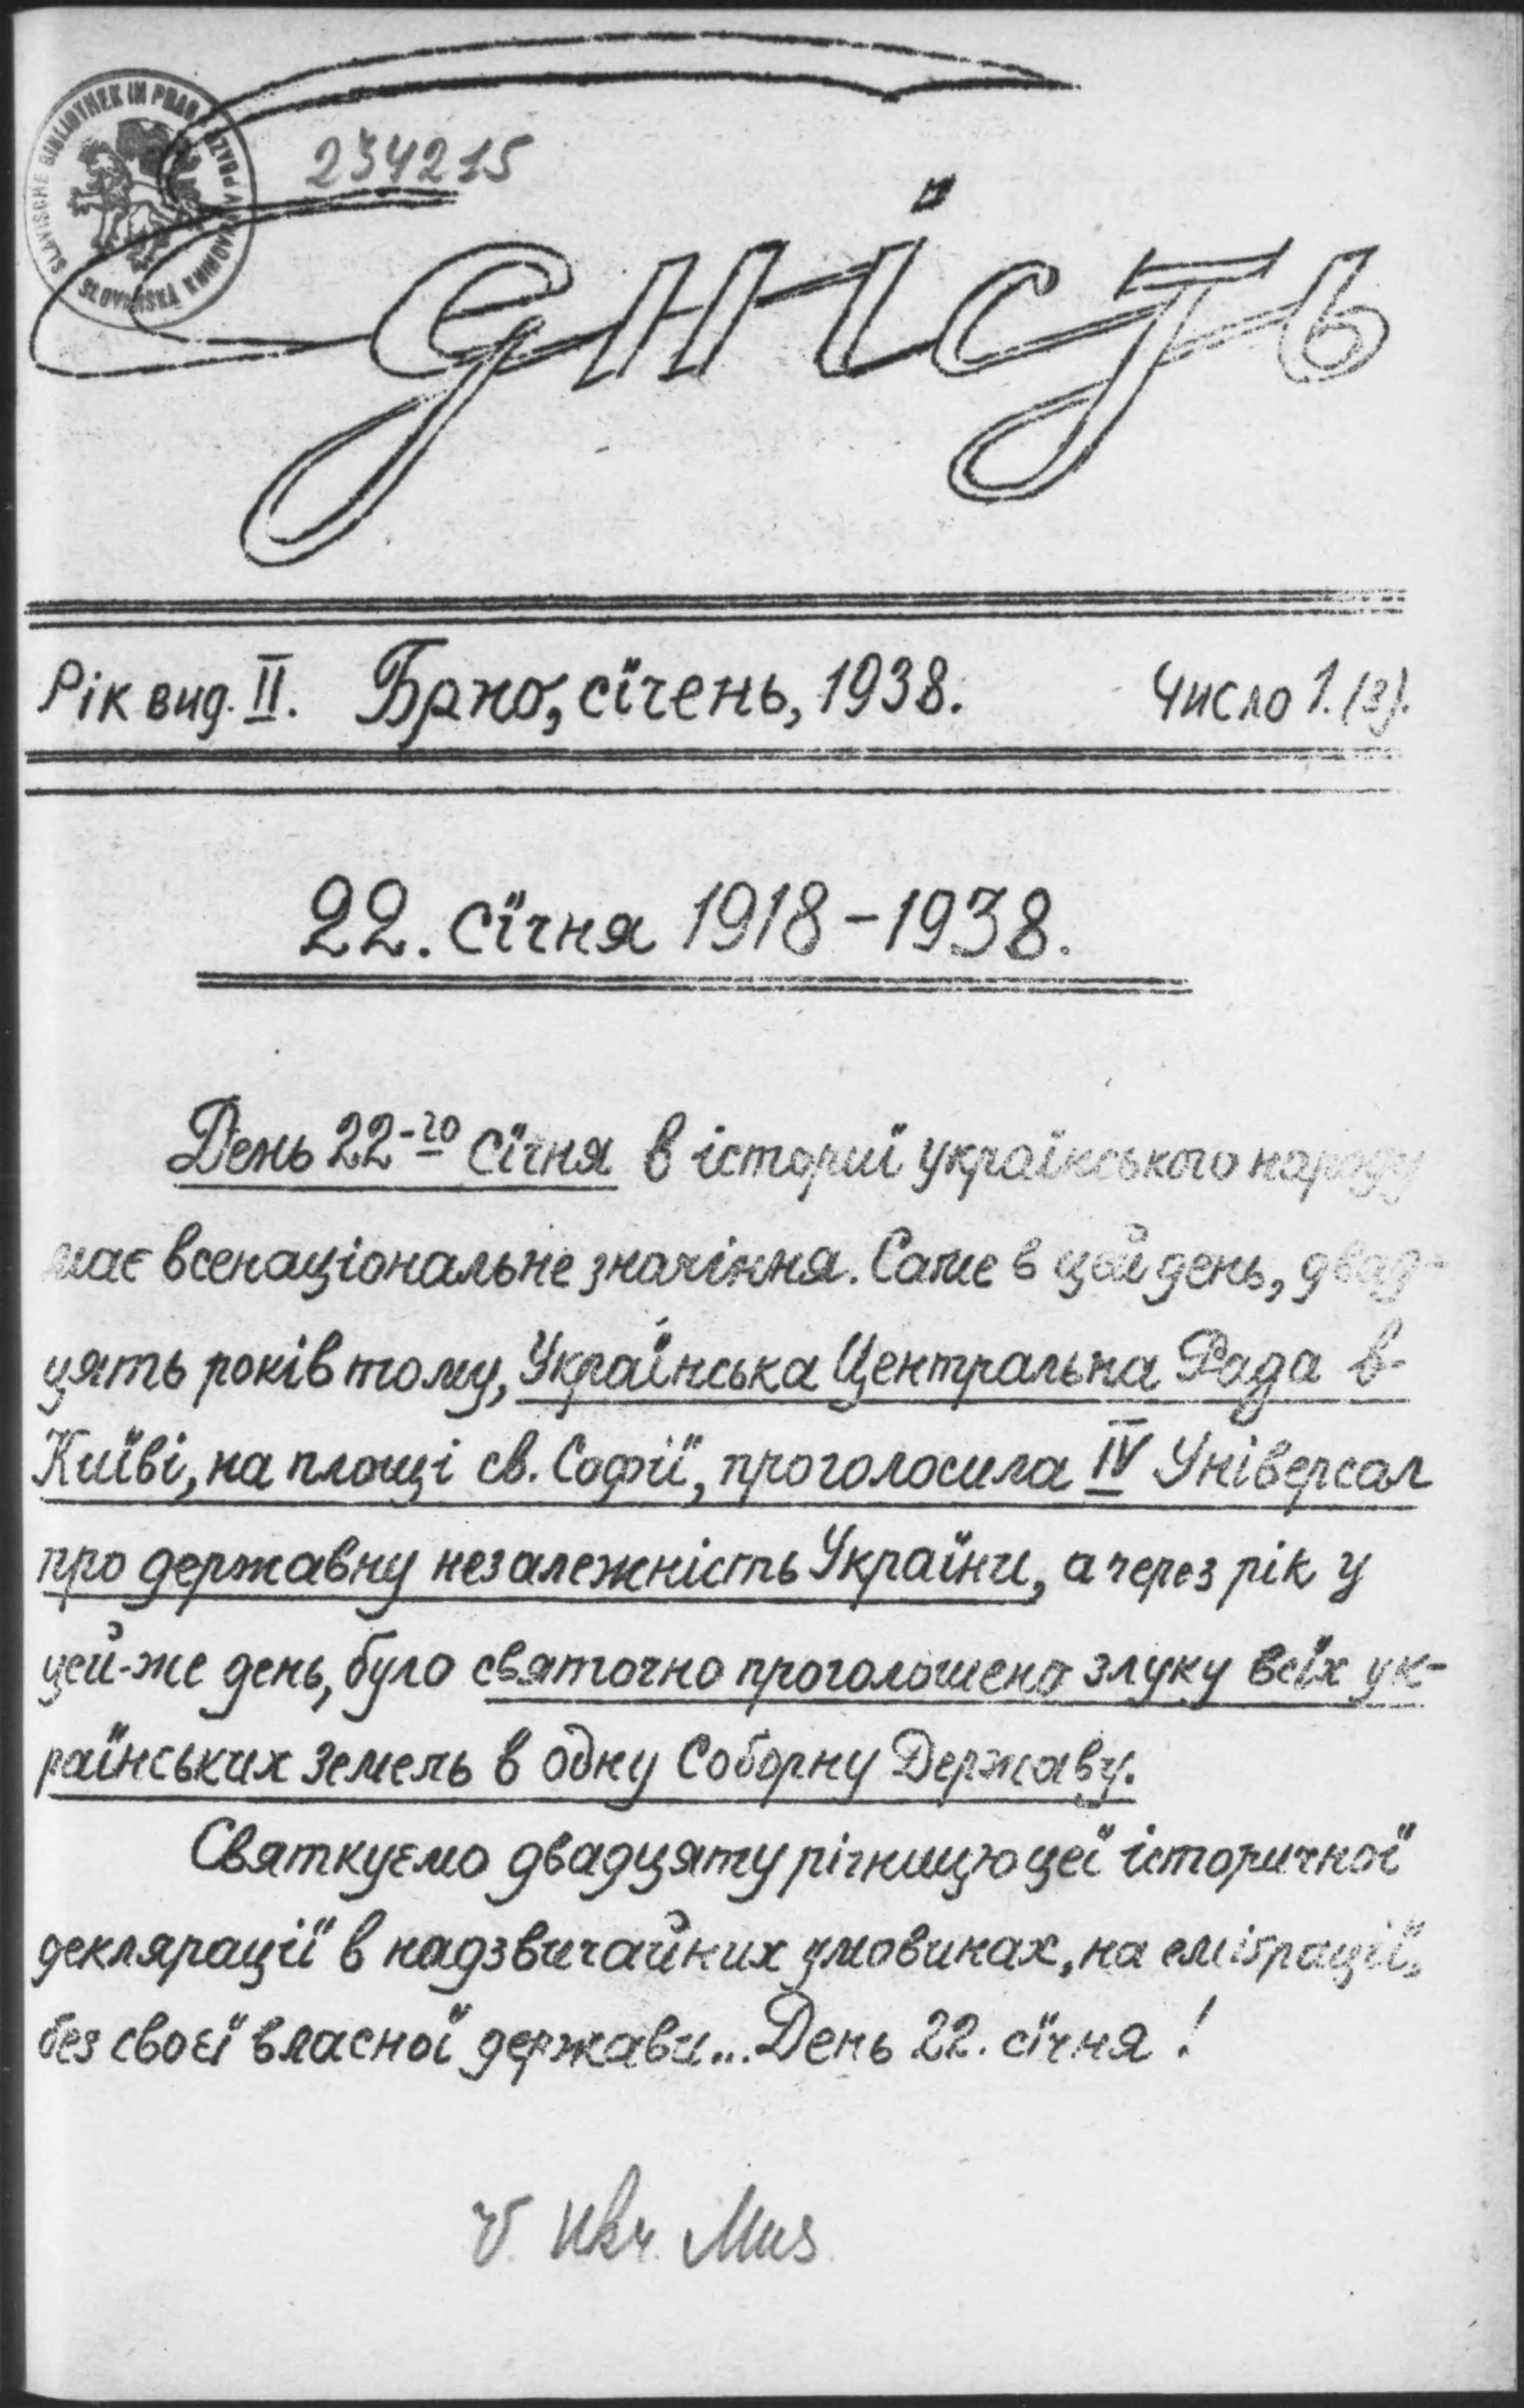 SLAVISCHE BIBLIOTHEK IN PRAG
SLOVANSKÁ KNIHOVNA V PRAZE
234215
Єдність
Рік вид. II. Брно, січень, 1938. Число 1.
22. сїчня 1918-1938.
День 22-го Сїчня в історії українського народу
має всенаціональне значіння. Саме в цей день, двад-
цять років тому, Українська Центральна Рада в
Київі, на площі св. Софії, проголосила IV Універсал
про державну незалежність України, а через рік у
цей-же день, було святочно проголошено злуку всїх ук-
раїнських земель в одну Соборну Державу.
Святкуємо двадцяту річницю цеї історичної
деклярації в надзвичайних умовинах, на еміґрації,
без своєї власної держави... День 22. сїчня!
V. Ukr. Mus